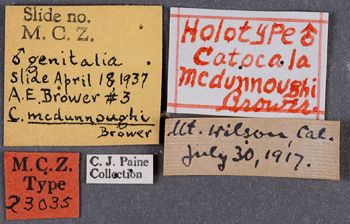 Slide no.
M. C. Z.
♂ genitalia
slide April 18 1937
A. E. Brower #3
C. mcdunnoughi
Brower
Holotype ♂
Catocala
mcdunnoughi
Brower.
Mt. Wilson, Cal.
July 30, 1917.
M. C. Z.
Type
23035
C. J. Paine
Collection